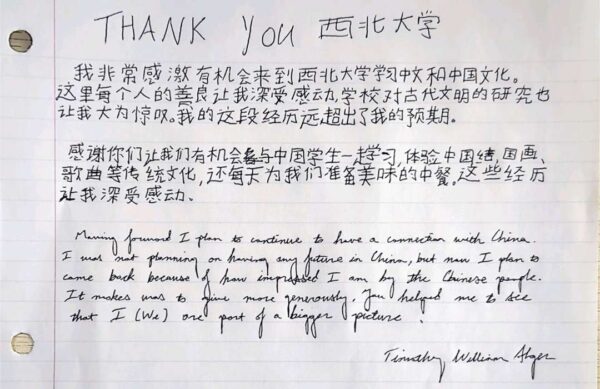 THANK YOU 西北大学
我非常感激有机会来到西北大学学习中文和中国文化。
这里每个人的善良让我深受感动,学校对古代文明的研究也
让我大为惊叹。我的这段经历远超出了我的预期。
感谢你们让我们有机会与中国学生一起学习,体验中国结,国画、
歌曲等传统文化,还每天为我们准备美味的中餐。这些经历
让我深受感动、
Moving forward I plan to continue to have a connection with China.
I was not planning on having any future in China, but now I plan to
come back because of how impressed I am by the Chinese people.
It makes was to give more generously. You helped me to see
that I (We) are part of a bigger picture.
Timothy William